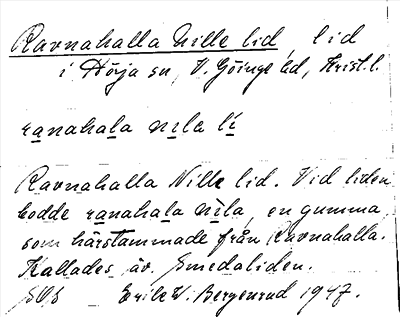 Ravnahalla Nille lid, lid
i Hörja sn, V. Göinge hd, Krist. l.
ranahala nila li
Ravnahalla Nille lid. Vid liden
bodde ranahala nila, en gumma
som härstammade från Ravnahalla.
Kallades äv. Smedaliden.
Erik W. Bergenrud 1947.